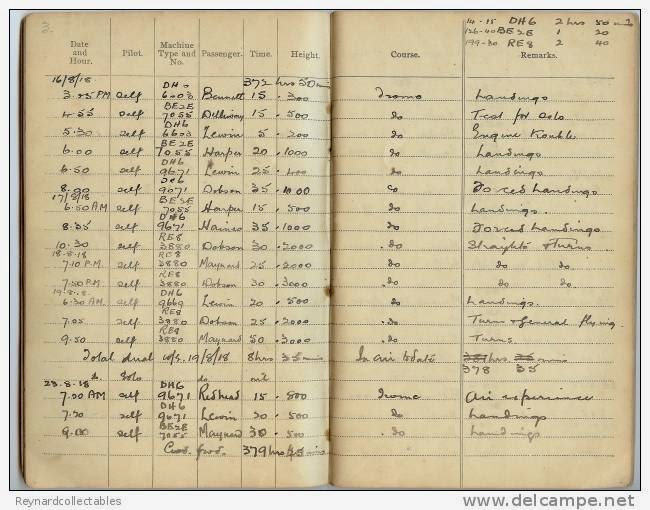 3.
14-15 DH6 2 hrs 50
126-40 BE2E 1 20
199-30 RE8 2 40
Date and Hour. Pilot. Machine Type and No. Passenger. Time. Height. Course. Remarks.
16/8/18 DH6 372 hrs 50
3.25 PM self 6603 Bennett 15 . 300 Landings
BE2E
4.55 self 7055 15 . 500 do Test for solo
DH6
5.30 self 6603 Lewin 5 . 200 do Engine
BE2E
6.00 self 7055 Harper 20 . 1000 do Landings
DH6
6.50 self 9671 Lewin 25 . 400 do Landings
DH6
8.00 self 9671 Dobson 35 . 1000 do Forced Landings
17/8/18 BE2E
6.50 AM self 7055 Harper 15 . 500 do Landings.
DH6
8.35 self 9671 Haines 35 . 1000 do Forced Landings
RE8
10.30 self 3880 Dobson 30 . 2000 do Straights & Turns
18.8.18 RE8
7.10 P.M self 3880 Maynard 25 . 2000 do do do.
RE8
7.50 PM self 3880 Dobson 30 . 3000 do do do.
19.8.8. DH6
6.30 AM. self 9669 Lewin 20 . 500 do Landings.
RE8
7.05 self 3880 Dobson 25 . 2000 do Turns & General flying.
RE8
9.50 self 3880 Maynard 50 . 3000 do Turns.
Total dual w/e. 19/8/18 8 hrs 35 mins In air to date hrs mins
378 35
do. Solo do nil
23-8-18 DH6
7.00 AM self 9671 Redhead 15 . 800 Air experience
DH6
7.20 self 9671 Lewin 30 . 500 do Landings
BE2E
9.00 self 7055 Maynard 30 . 500 do Landings
fwd. 379 hrs mins
Reynardcollectables
www.delcampe.net